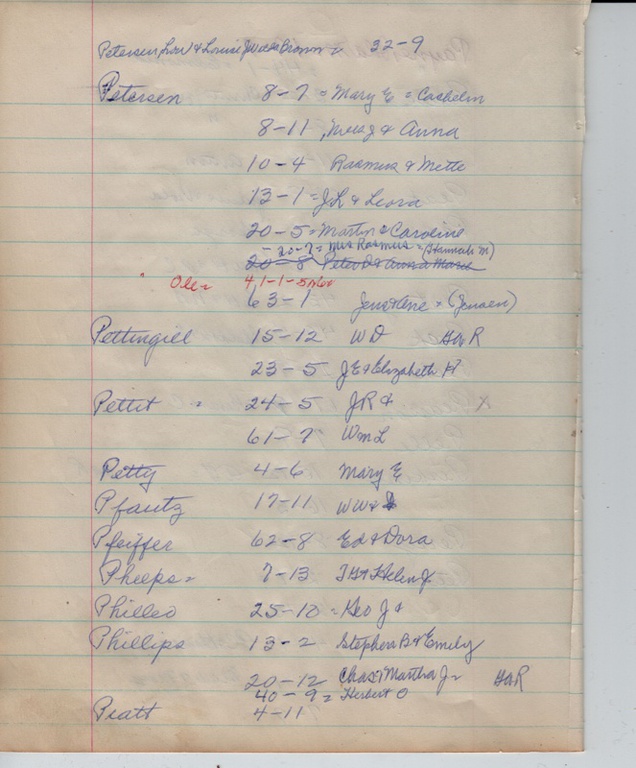 Petersen, & Louise Brown = 22-9
Petersen 8-7 = Mary E =
8-11, & Anna
10-4 Rasmus & Mette
13-1 = J.L. & Leora
20-5 = Martin & Caroline
- 20-7 = Mrs Rasmus = (Hannah M)
20-8 Peter & Anna Marie
Ole = 4,1-1-
63-1 Jens & Lene = (Jensen)
Pettingiel 15-12 WD GAR
23-5 JE & Elizabeth H
Pettit = 24-5 JR & X
61-7 Wm L
Petty 4-6 Mary E
Pfautz 17-11 WW &
Pfeiffer 62-8 Ed & Dora
Phelps = 7-13 & Helen J
Philleo 25-10 = Geo J &
Phillips 13-2 Stephen B & Emily
20-12 Chas & Martha J = GAR
40-9 = Herbert O
Piatt 4-11